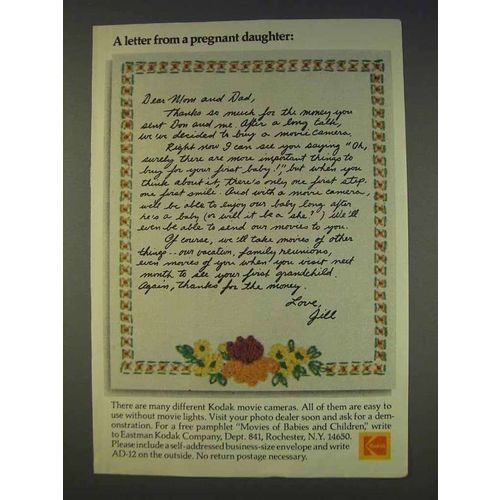 A letter from a pregnant daughter:
Dear Mom and Dad,
Thanks so much for the money you
sent Don and me. After a long talk,
we've decided to buy a movie camera.
Right now I can see you saying "Oh,
surely there are more important things to
buy for your first baby!", but when you
think about it, there's only one first step,
one first smile. And with a movie camera,
we'll be able to enjoy our baby long after
he's a baby (or will it be a "she"?) We'll
even be able to send our movies to you.
Of course, we'll take movies of other
things... our vacation, family reunions,
even movies of you when you visit next
month to see your first grandchild.
Again, thanks for the money.
Love,
Jill
There are many different Kodak movie cameras. All of them are easy to
use without movie lights. Visit your photo dealer soon and ask for a dem-
onstration. For a free pamphlet "Movies of Babies and Children," write
to Eastman Kodak Company, Dept. 841, Rochester, N.Y. 14650.
Please include a self-addressed business-size envelope and write
AD-12 on the outside. No return postage necessary.
Kodak